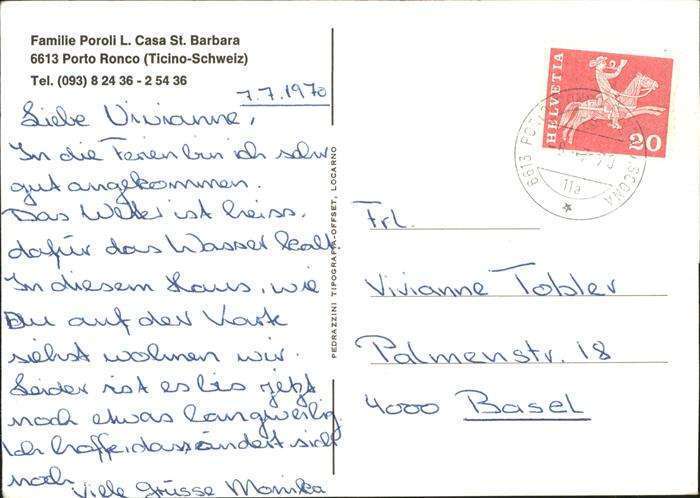 Familie Poroli L. Casa St. Barbara
6613 Porto Ronco (Ticino-Schweiz)
Tel. (093) 8 24 36 - 2 54 36
7.7.1970
Liebe Vivianne,
In die Ferien bin ich sehr
gut angekommen.
Das Wetter ist heiss,
dafür das Wasser kalt.
In diesem Haus, wie
Du auf der Karte
siehst wohnen wir.
Leider ist es bis jetzt
noch etwas langweilig.
Ich hoffe, dass ändert sich
noch.
Viele Grüsse Monika
PEDRAZZINI TIPOGRAFIA-OFFSET, LOCARNO
HELVETIA
20
6613 PORTO
ASCONA
11a
Frl.
Vivianne Tobler
Palmenstr. 18
4000 Basel